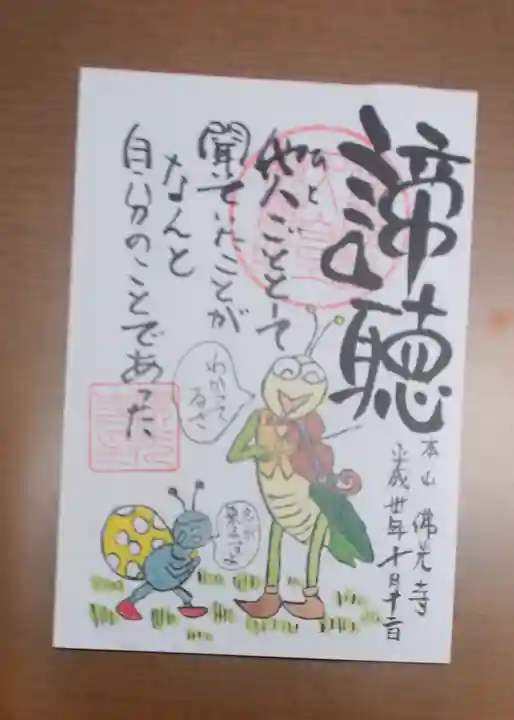 諦聴
他人ごととして
ひと
聞いていたことが
なんと
自分のことであった
わかってるさ
本山 佛光寺
平成卅年十月十二日